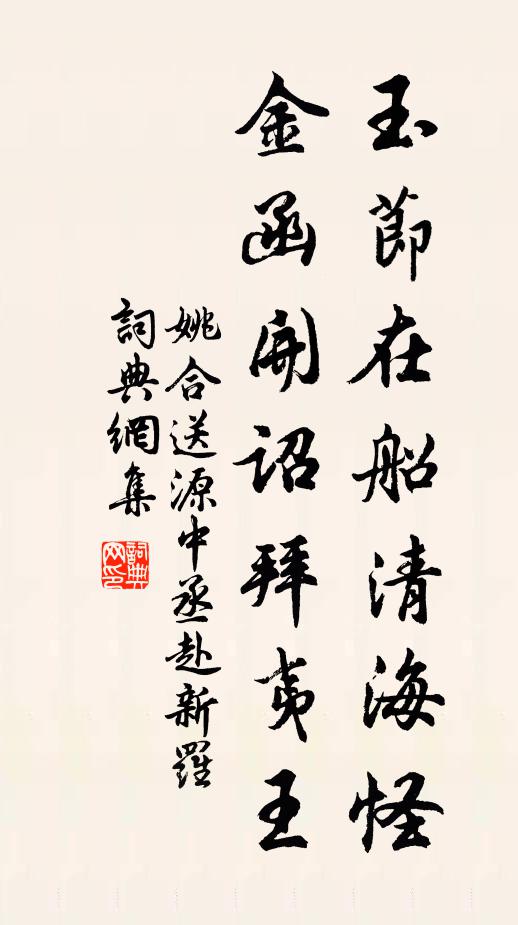 玉節在船清海怪
金函開詔拜夷王
姚合送源中丞赴新羅
詞典網集
詞典网印